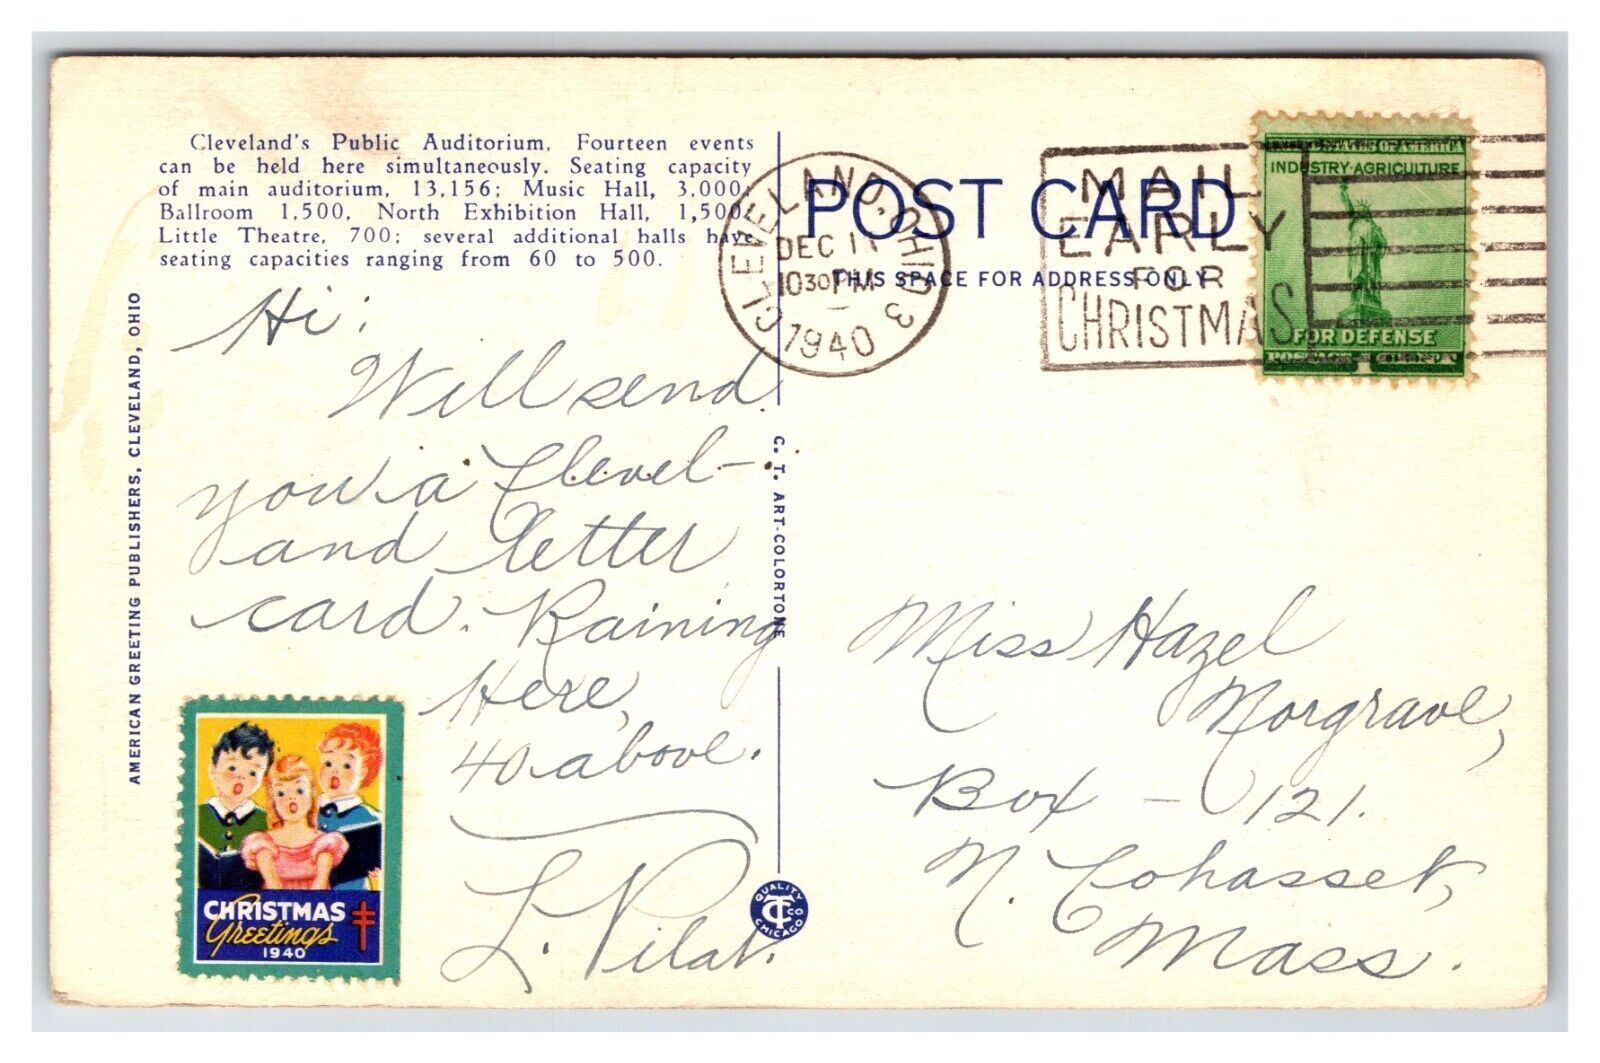 Cleveland's Public Auditorium. Fourteen events
can be held here simultaneously. Seating capacity
of main auditorium, 13,156; Music Hall, 3,000;
Ballroom 1,500, North Exhibition Hall, 1,500;
Little Theatre, 700; several additional halls have
seating capacities ranging from 60 to 500.
Hi:
Will send
you a Clevel-
and letter
card. Raining
Here,
40 above.
L. Pilat.
AMERICAN GREETING PUBLISHERS, CLEVELAND, OHIO
CHRISTMAS
Greetings
1940
C. T. ART-COLORTONE
QUALITY
CT CO
CHICAGO
POST CARD
THIS SPACE FOR ADDRESS ONLY
CLEVELAND, OHIO 3
DEC
1030 PM
1940
MAIL
EARLY
FOR
CHRISTMAS
INDUSTRY·AGRICULTURE
FOR DEFENSE
Miss Hazel
Norgrave,
Box - 121.
N. Cohasset,
Mass.